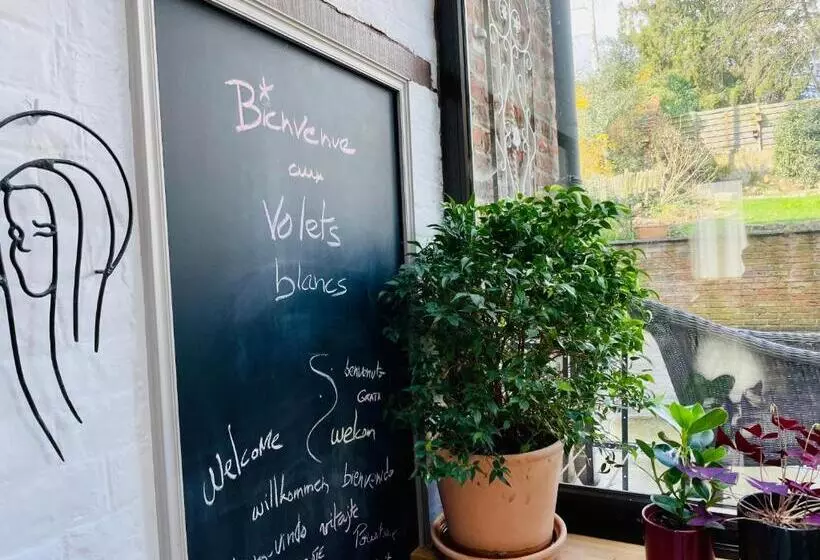 Bienvenue
aux
Volets
blancs
benvenuti
GRATA
Welcome
wekom
willkommen bienvenido
vindo witajte